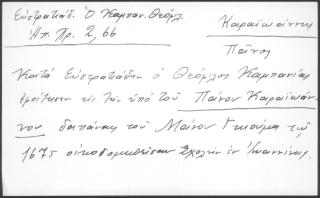 Εὐστρατιάδ. Ὁ Καμπαν. Θεόφιλ.
Ἠπ. Χρ. 2, 66
Καραϊωάννης
Πάνος
Κατά Εὐστρατιάδην ὁ Θεόφιλος Καμπανίας
ἐφοίτησεν εἰς τήν ὑπό τοῦ Πάνου Καραϊωάν
νου δαπάναις τοῦ Μάνου Γκιούμα τῷ
1675 οἰκοδομηθεῖσαν Σχολήν ἐν Ἰωαννίνοις.